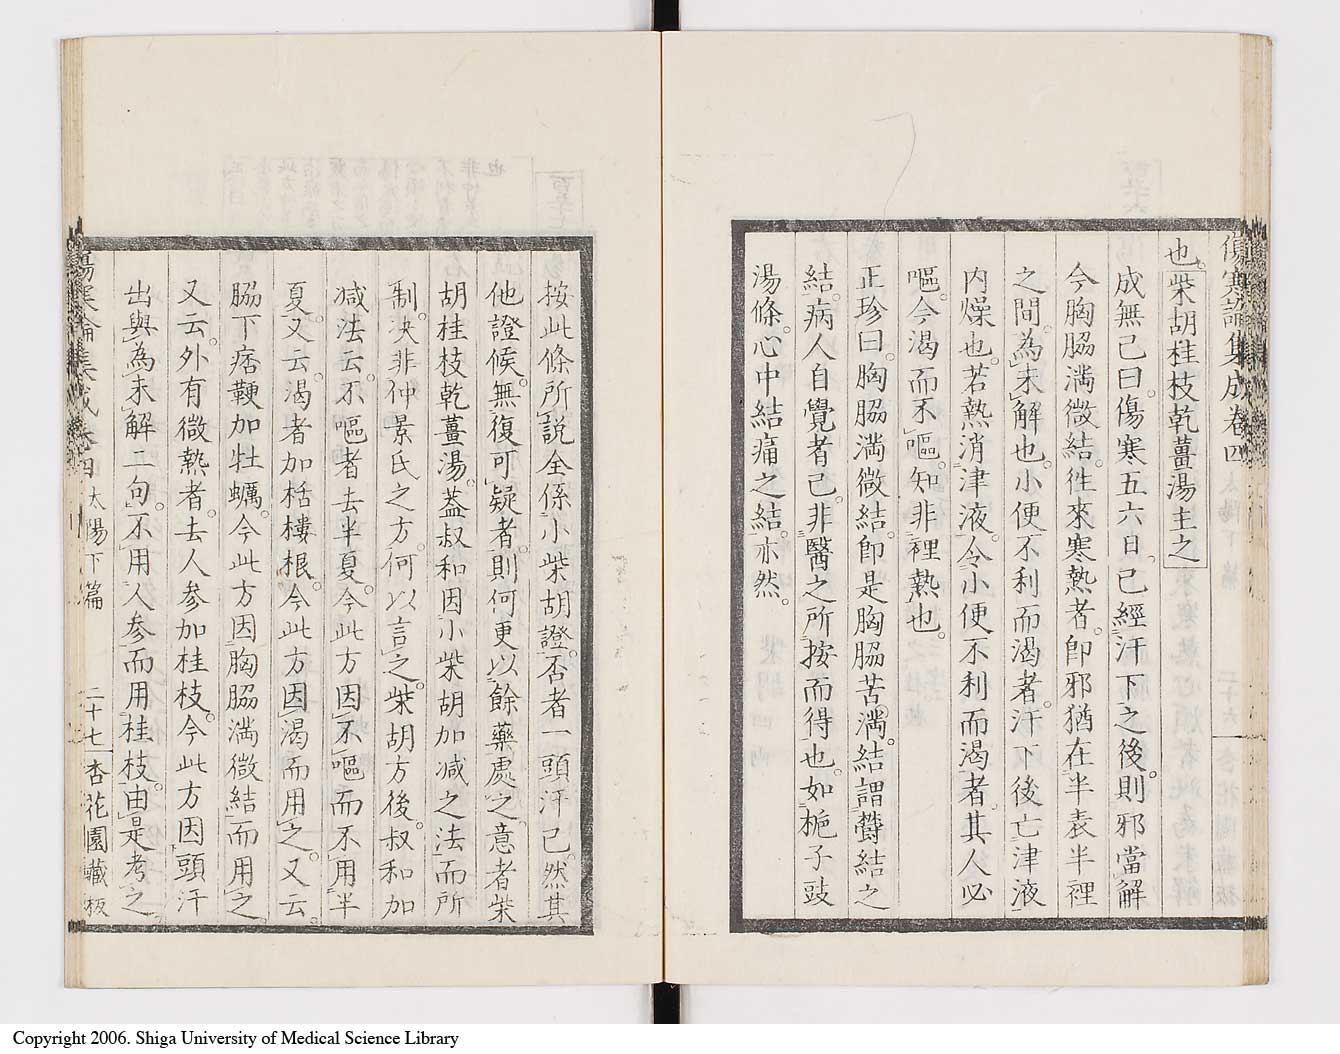 傷寒論集成卷四
也。柴胡桂枝乾薑湯主之
成無己曰。傷寒五六日。已經汗下之後。則邪當解
今胸脇滿微結。徃來寒熱者。卽邪猶在半表半裡
之間。為未解也。小便不利而渴者。汗下後亡津液
内燥也。若熱消津液。令小便不利而渴者。其人必
嘔。今渴而不嘔。知非裡熱也。
正珍曰。胸脇滿微結。卽是胸脇苦滿。結謂鬱結之
結。病人自覺者已。非醫之所按而得也。如梔子豉
湯條。心中結痛之結。亦然。
按此條所說全係小柴胡證。否者一頭汗已。然其
他證候。無復可疑者。則何更以餘藥處之。意者柴
胡桂枝乾薑湯。蓋叔和因小柴胡加減之法而所
制。决非仲景氏之方。何以言之。柴胡方後。叔和加
减法云。不嘔者去半夏。今此方因不嘔而不用半
夏。又云。渴者加栝樓根。今此方因渴而用之。又云。
脇下痞鞕加牡蠣。今此方因胸脇滿微結而用之。
又云。外有微熱者。去人参加桂枝。今此方因頭汗
出與為未解二句。不用人参而用桂枝。由是考之
傷寒論集成卷四 太陽下篇 二十七 杏花園藏板
Copyright 2006. Shiga University of Medical Science Library